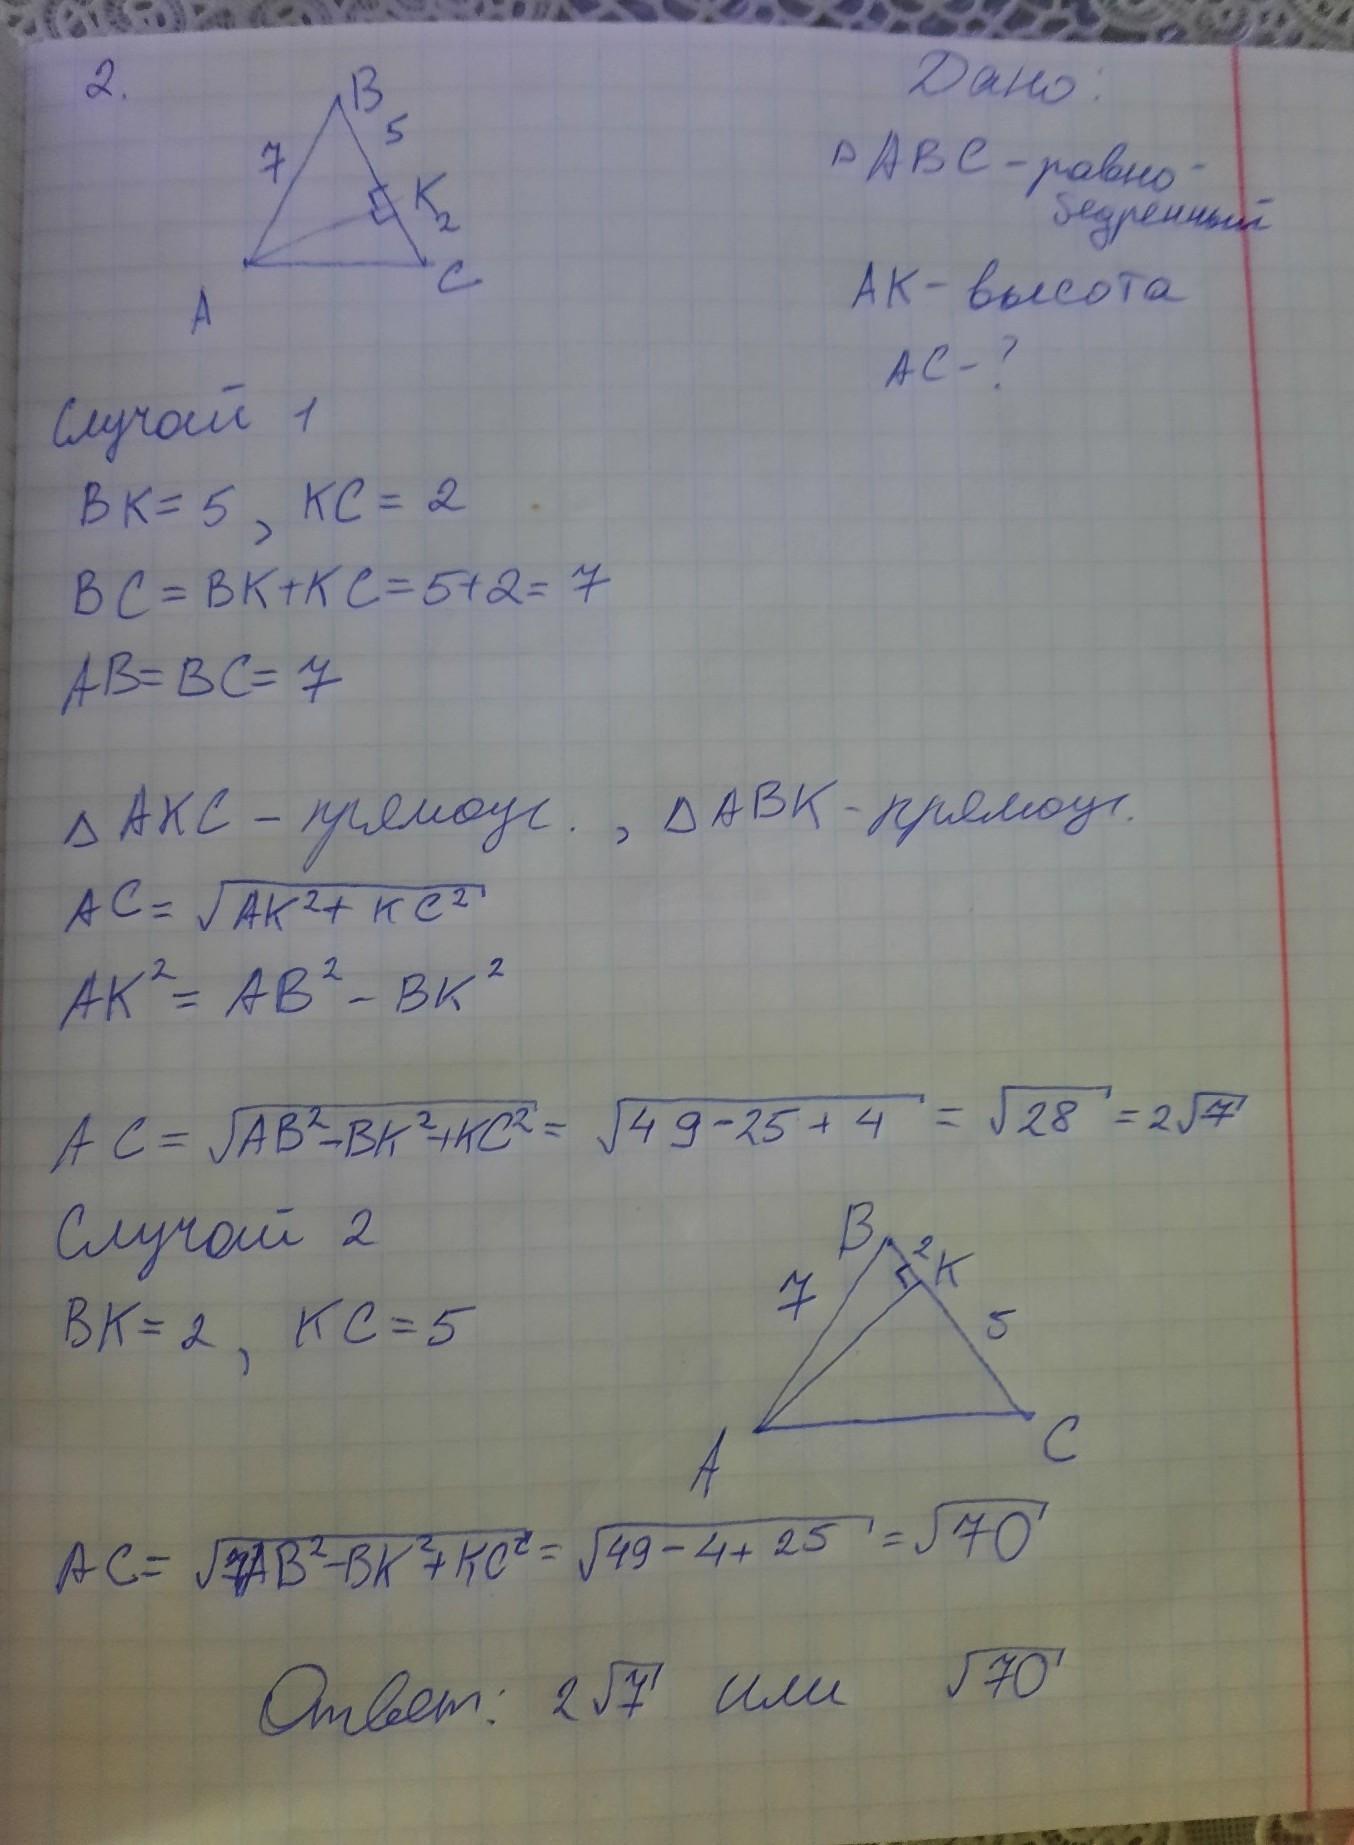 2.
B
5
7
K
2
A
C
Дано:
△ABC - равно-
бедренный
AK - высота
AC - ?
Случай 1
BK = 5, KC = 2
BC = BK + KC = 5+2 = 7
AB = BC = 7
△AKC - прямоуг., △ABK - прямоуг.
AC = √(AK² + KC²)
AK² = AB² - BK²
AC = √(AB² - BK² + KC²) = √(49 - 25 + 4) = √28 = 2√7
Случай 2
BK = 2, KC = 5
B
2
K
7
5
A
C
AC = √(AB² - BK² + KC²) = √(49 - 4 + 25) = √70
Ответ: 2√7 или √70